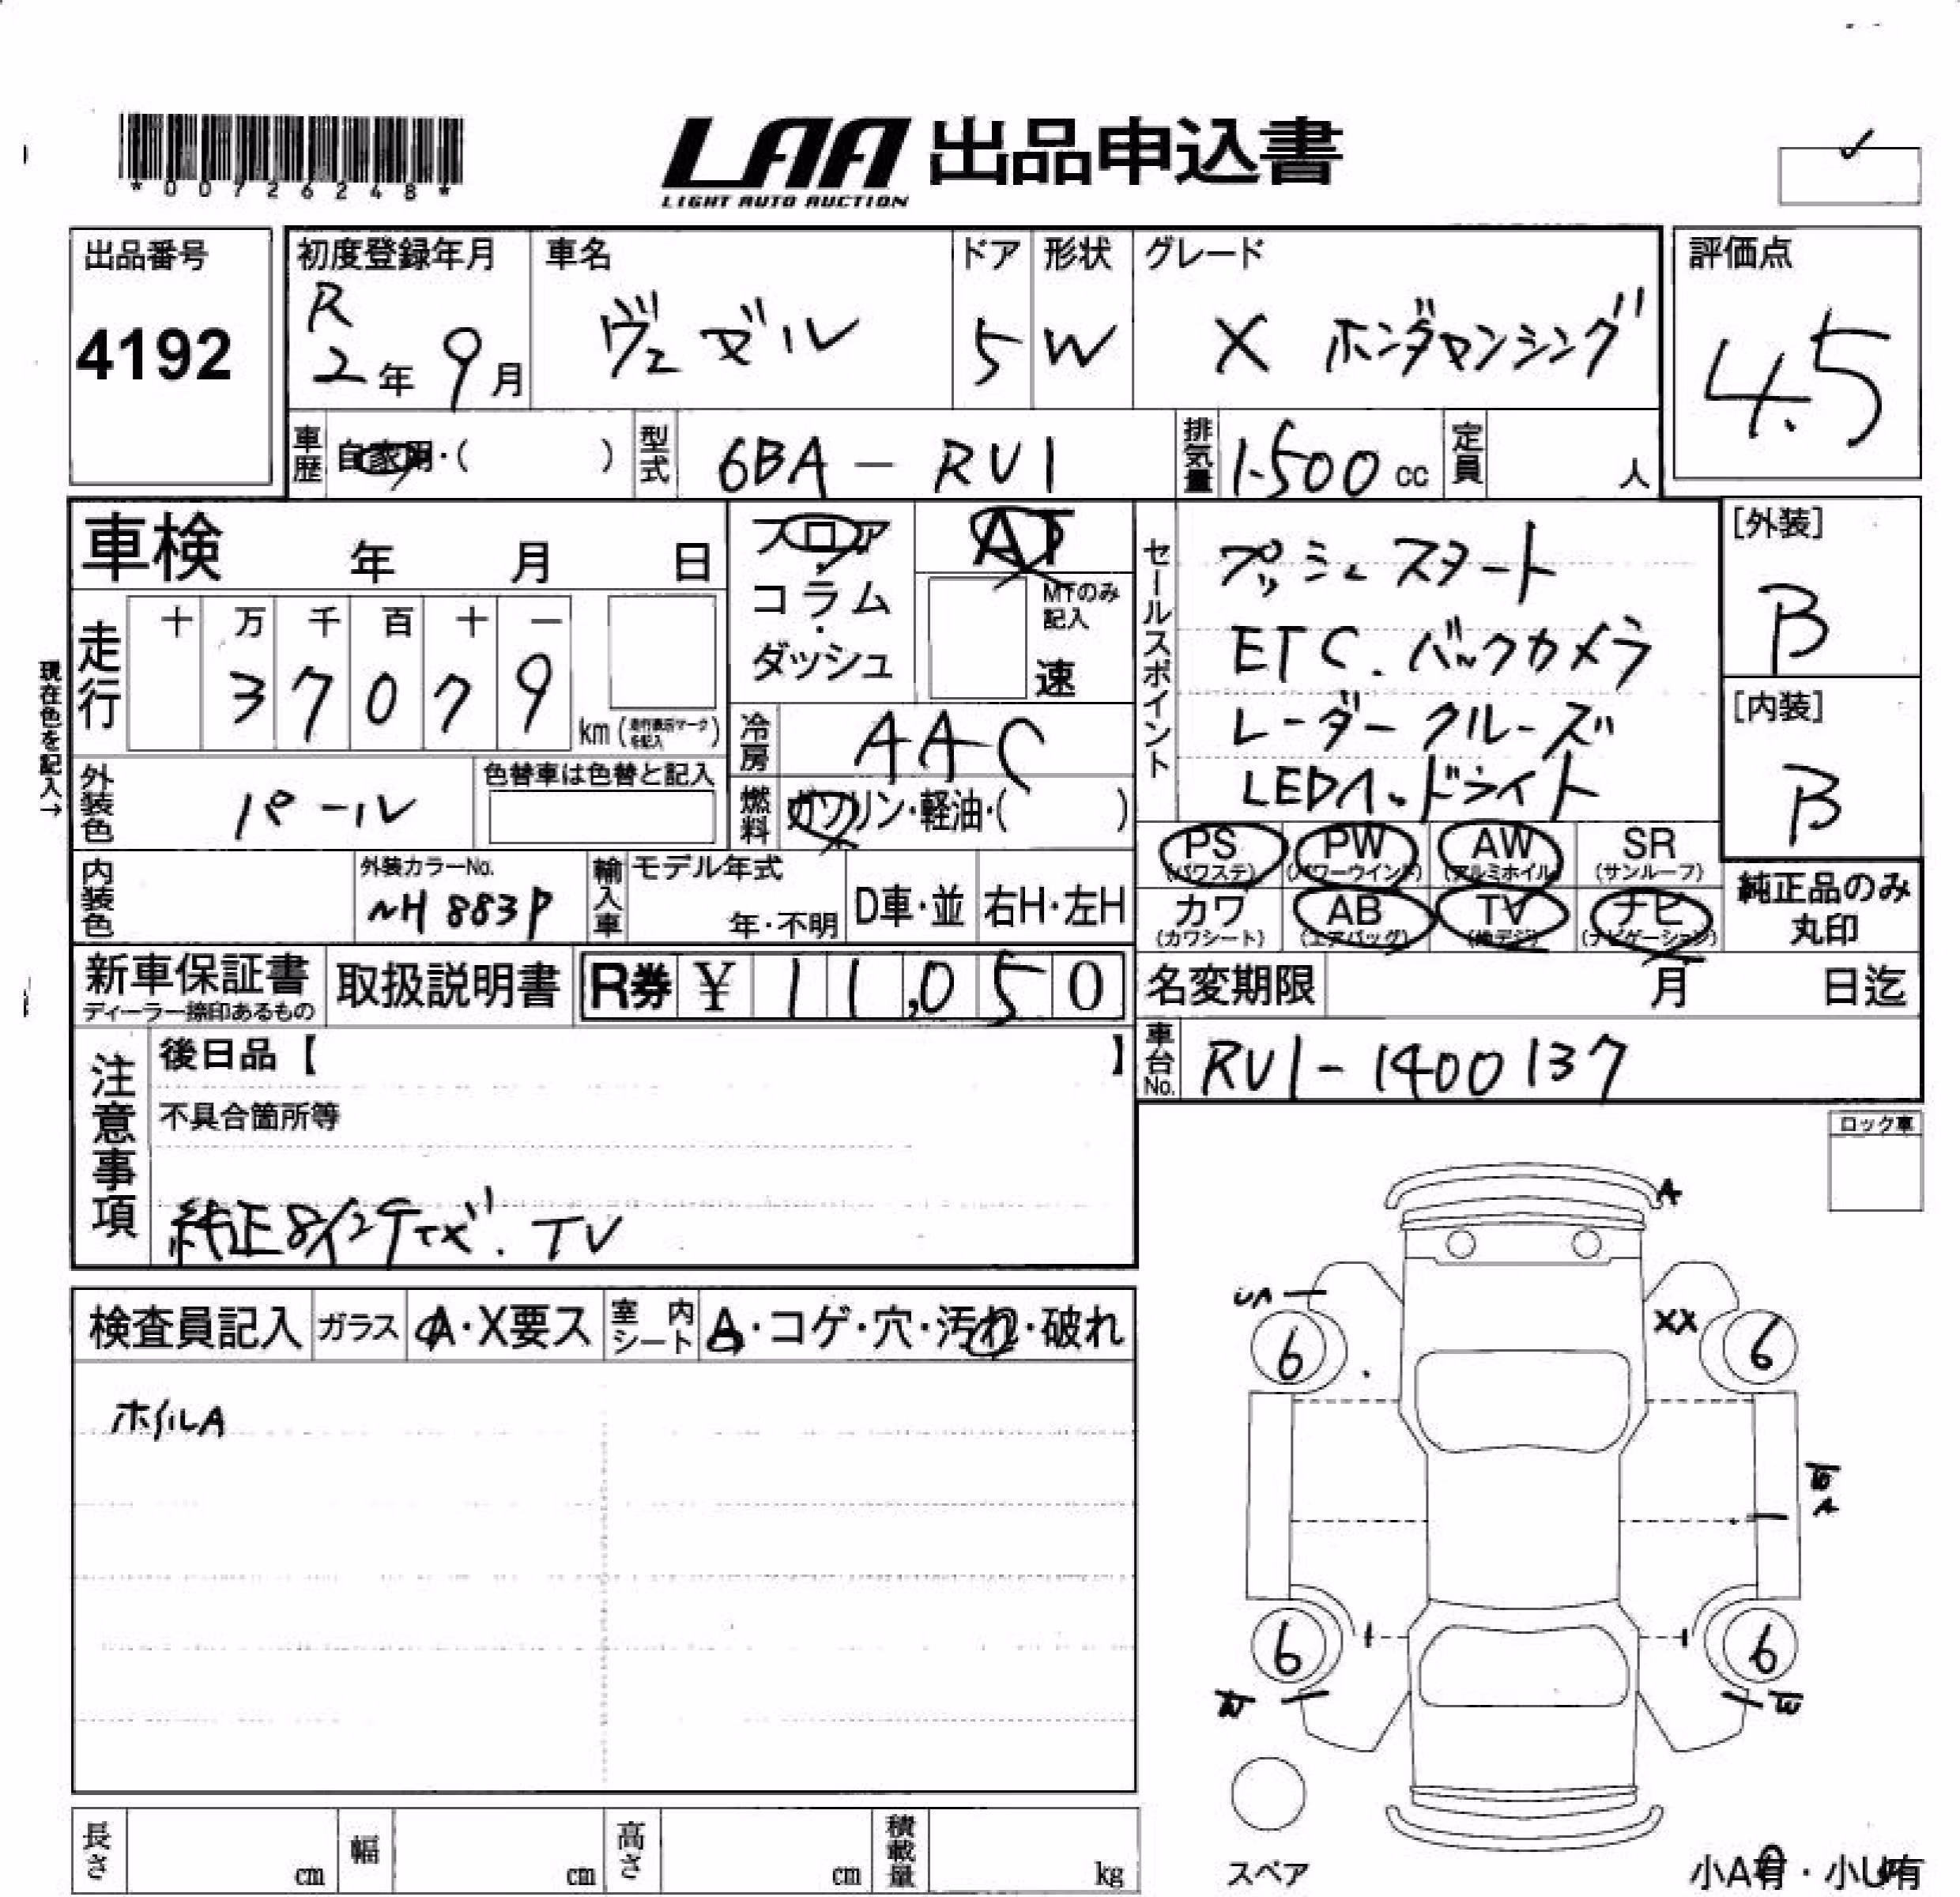 *00726248*
LAA 出品申込書
LIGHT AUTO AUCTION
出品番号
4192
初度登録年月
R
2年 9月
車名
ヴェゼル
ドア
5
形状
W
グレード
X ホンダセンシング
評価点
4.5
車歴 自家用・( )
型式 6BA-RU1
排気量 1.500 cc
定員 人
車検 年 月 日
フロア
・
コラム
・
ダッシュ
AT
MTのみ
記入
速
走行
十 万 千 百 十 一
3 7 0 7 9
km (走行表示マークを記入)
現在色を記入→
冷房 AAC
外装色 パール
色替車は色替と記入
燃料 ガソリン・軽油・( )
セールスポイント
プッシュスタート
ETC. バックカメラ
レーダークルーズ
LEDヘッドライト
[外装]
B
[内装]
B
内装色
外装カラーNo.
NH883P
輸入車
モデル年式
年・不明
D車・並
右H・左H
PS (パワステ)
PW (パワーウインド)
AW (アルミホイル)
SR (サンルーフ)
カワ (カワシート)
AB (エアバッグ)
TV (地デジ)
ナビ (ナビゲーション)
純正品のみ
丸印
新車保証書
ディーラー捺印あるもの
取扱説明書
R券 ¥ 11,050
名変期限 月 日迄
車台No. RU1-1400137
注意事項
後日品【 】
不具合箇所等
純正8インチナビ. TV
ロック車
検査員記入
ガラス A・X要ス
室内シート A・コゲ・穴・汚れ・破れ
ホイルA
A
UA
XX
6
6
W
A
6
6
W
W
スペア
長さ cm
幅 cm
高さ cm
積載量 kg
小A有・小U有